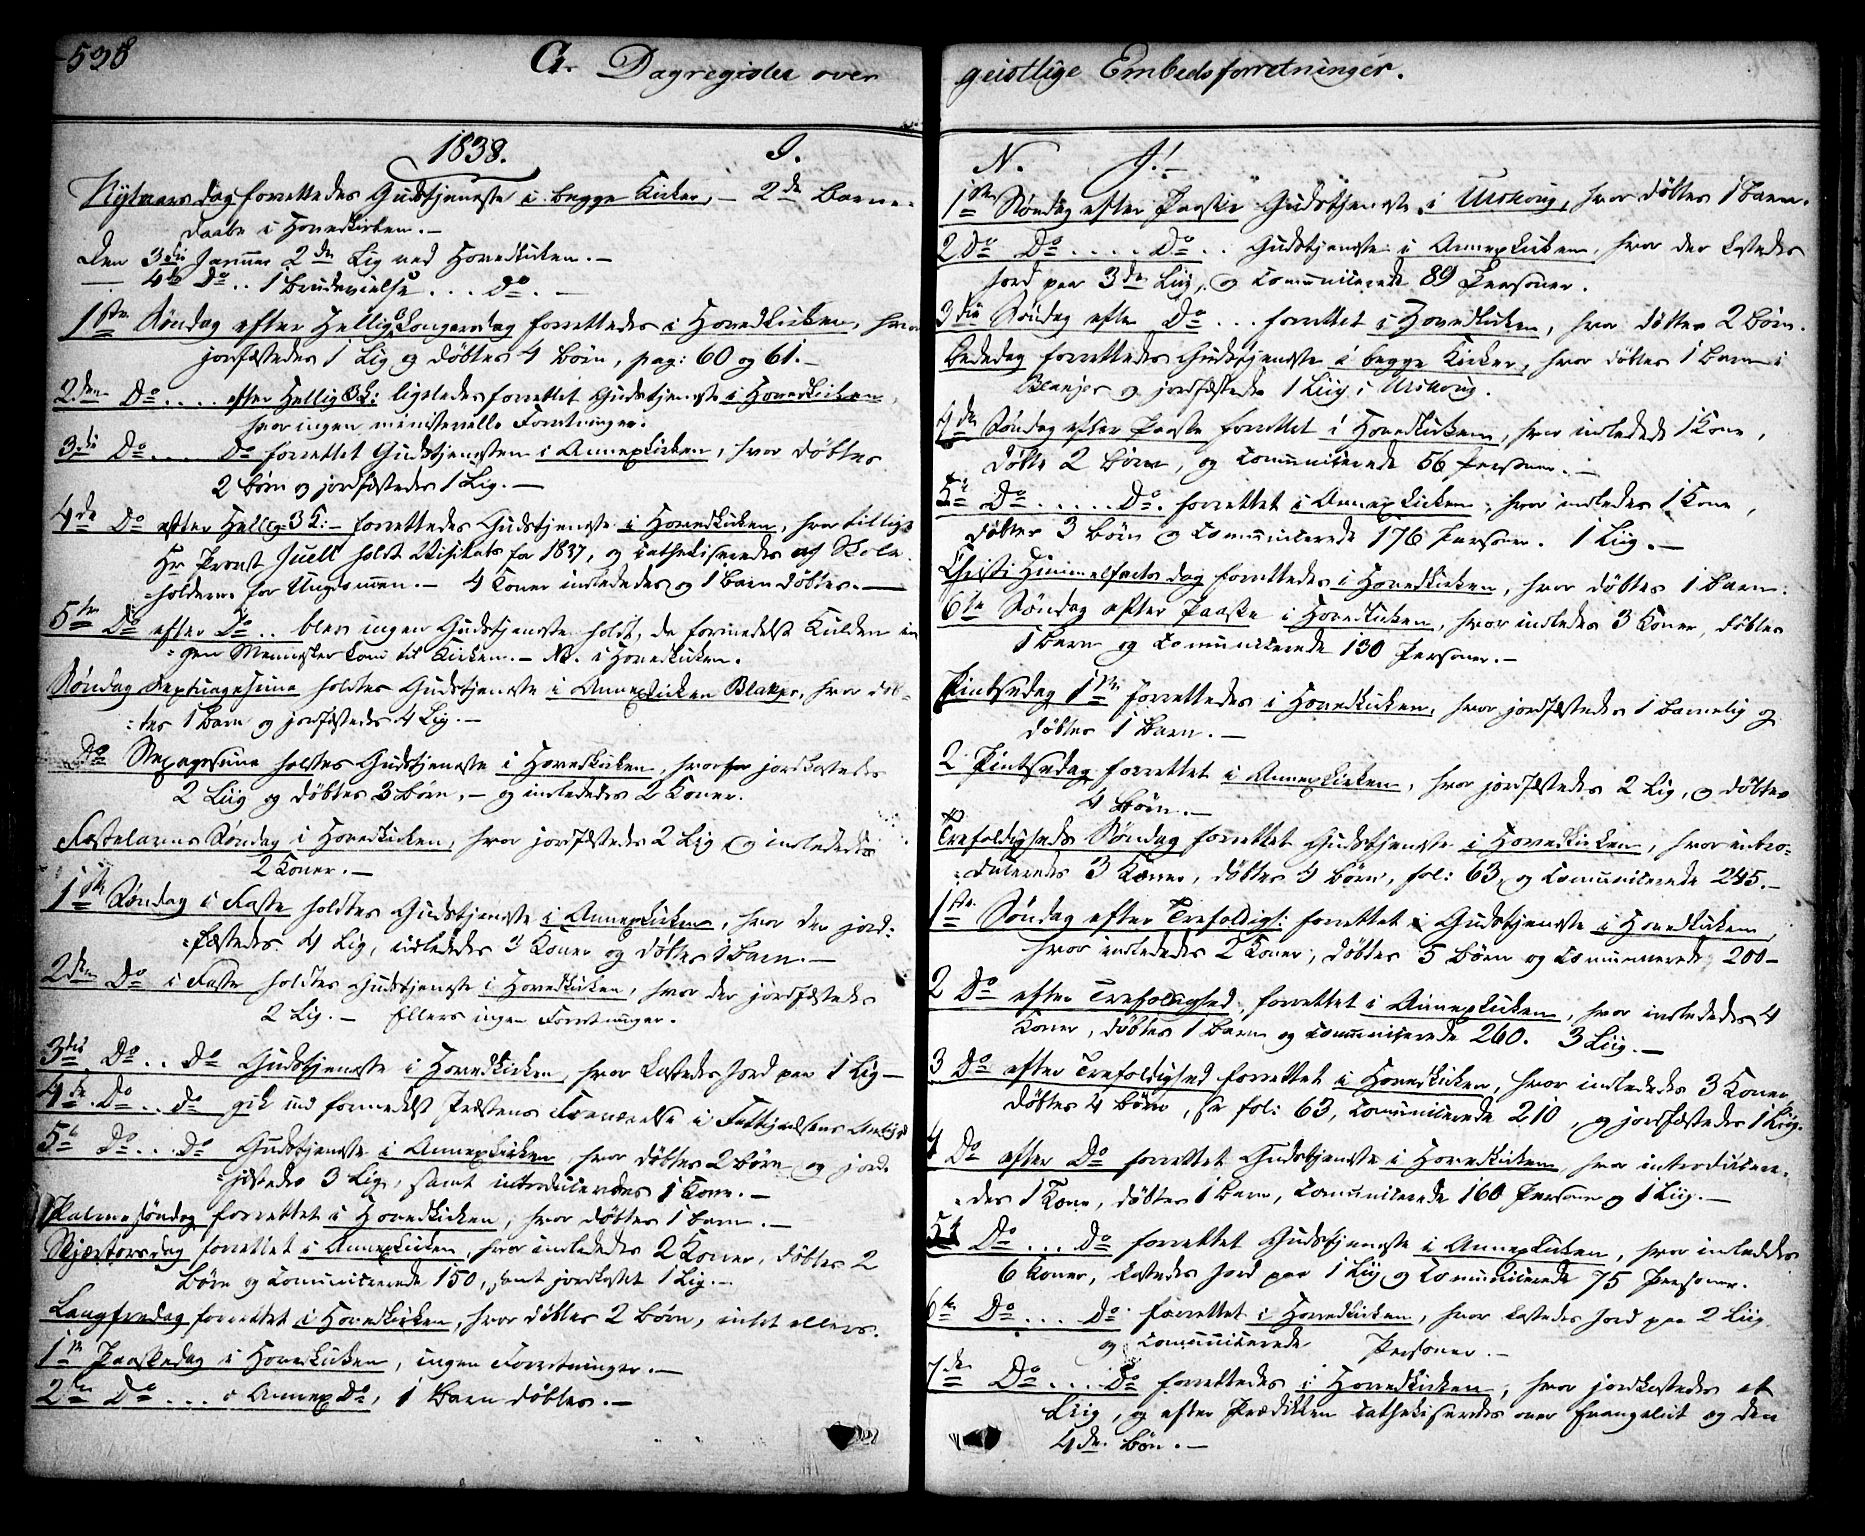 538
G. Dagregister over
1838. I.
Nytaars dag forrettedes Gudstjeneste i begge Kirker, – 2de Barne-
daabe i Hovedkirken. –
Den 3die Januar 2de Lig ved Hovedkirken. –
— 4de Do .. 1 Brudevielse ... Do. –
1ste Søndag efter Hellig3Kongersdag forrettedes i Hovedkirken, hvor
jordfæstedes 1 Lig og døbtes 4 Børn, pag: 60 og 61. –
2den Do .... efter Hellig 3K: ligeledes forrettet Gudstjeneste i Hovedkirken,
hvor ingen ministerielle Forretninger.
3die Do .... Do forrettet Gudstjenesten i Annexkirken, hvor døbtes
2 Børn og jordfæstedes 1 Lig. –
4de Do efter Hellig 3K: – forrettedes Gudstjeneste i Hovedkirken, hvor tillige
Hr Provst Juell holdt Visitats for 1837, og catheliseredes af Skole-
holderne for Ungdommen. – 4 Koner indlededes og 1 Barn døbtes. —
5te Do efter Do .. blev ingen Gudstjeneste holdt, da formedelst Kulden in-
gen Mennesker kom til Kirken. – NB. i Hovedkirken.
Søndag Septuagesima holdtes Gudstjeneste i Annexkirken Blakjer, hvor døb-
tes 1 Barn og jordfæstedes 4 Lig. –
Do Sexagesima holdtes Gudstjeneste i Hovedkirken, hvor jordkastedes
2 Liig og døbtes 3 Børn, – og indlededes 2 Koner.
Fastelavns Søndag i Hovedkirken, hvor jordfæstedes 2 Lig og indlededes
2 Koner. –
1ste Søndag i Faste holdtes Gudstjeneste i Annexkirken, hvor der jord-
fæstedes 4 Lig, indlededes 3 Koner og døbtes 1 Barn. –
2den Do i Faste holdtes Gudstjeneste i Hovedkirken, hvor der jordfæstedes
2 Lig. – Ellers ingen Forretninger.
3die Do .. Do Gudstjeneste i Hovedkirken, hvor kastedes Jord paa 1 Lig –
4de Do .. Do gik ud formedelst Præstens Fraværelse i
5te Do ... Do Gudstjeneste i Annexkirken, hvor døbtes 2 Børn og jord-
fæstedes 3 Lig, samt introduceredes 1 Kone. –
Palmesøndag forrettet i Hovedkirken, hvor døbtes 1 Barn. –
Skjærtorsdag forrettet i Annexkirken, hvor indlededes 2 Koner, døbtes 2
Børn og Communicerede 150, samt jordkastet 1 Lig. –
Langfredag forrettet i Hovedkirken, hvor døbtes 2 Børn, intet ellers.
1ste Paaskedag i Hovedkirken, ingen Forretninger. –
2den Do ... i Annex Do, 1 Barn døbtes. –
geistlige Embedsforretninger.
N. J.
1ste Søndag efter Paaske Gudstjeneste i Urskoug, hvor døbtes 1 Barn.
2 Do Do .... Do .. Gudstjeneste i Annexkirken, hvor der kastedes
Jord paa 3de Liig, og Communicerede 89 Personer.
3die Søndag efter Do ... forrettet i Hovedkirken, hvor døbtes 2 Børn.
Bededag forrettedes Gudstjeneste i begge Kirker, hvor døbtes 1 Barn i
Blakjer og jordfæstedes 1 Liig i Urskoug.
4de Søndag efter Paaske forrettet i Hovedkirken, hvor indledede 1 Kone,
døbte 2 Børn, og Communicerede 56 Personer. –
5te Do ..... Do. forrettet i Annexkirken, hvor indledes 1 Kone,
døbtes 3 Børn og Communicerede 176 Personer. 1 Liig. –
Christi Himmelfarts dag forrettedes i Hovedkirken, hvor døbtes 1 Barn.
6te Søndag efter Paaske i Hovedkirken, hvor indledes 3 Koner, døbtes
1 Barn og Communicerede 130 Personer. –
Pintsedag 1ste forrettedes i Hovedkirken, hvor jordfæstedes 1 Barnelig og
døbtes 1 Barn. –
2 Pintsedag forrettet i Annexkirken, hvor jordfæstedes 2 Lig, og døbtes
4 Børn. –
Trefoldigheds Søndag forrettet Gudstjeneste i Hovedkirken, hvor intro-
duceredes 3 Koner, døbtes 4 Børn, fol: 63, og Communicerede 245. –
1ste Søndag efter Trefoldigh: forrettet Gudstjeneste i Hovedkirken,
hvor indlededes 2 Koner, døbtes 5 Børn og Communicerede 200 –
2 Do efter Trefoldighed forrettet i Annexkirken, hvor indlededes 4
Koner, døbtes 1 Barn og Communicerede 260. 3 Liig. –
3 Do efter Trefoldighed forrettet i Hovedkirken, hvor indlededes 3 Koner,
døbtes 4 Børn, se fol: 63, Communicerede 210, og jordfæstedes 1 Liig.
4 Do efter Do forrettet Gudstjeneste i Hovedkirken, hvor introducere-
des 1 Kone, døbtes 1 Barn, Communicerede 160 Personer og 1 Liig. –
5te Do ... Do forrettet Gudstjeneste i Annexkirken, hvor indlededes
6 Koner, kastedes Jord paa 1 Liig og Communicerede 75 Personer.
6te Do ... Do. forrettet i Hovedkirken, hvor kastedes Jord paa 2 Liig
og Communicerede Personer. –
7de Do ... Do forrettedes i Hovedkirken, hvor jordkastedes et
Liig, og efter Prædiken cathekiserdes over Evangeliet og den
4de Bøn. –